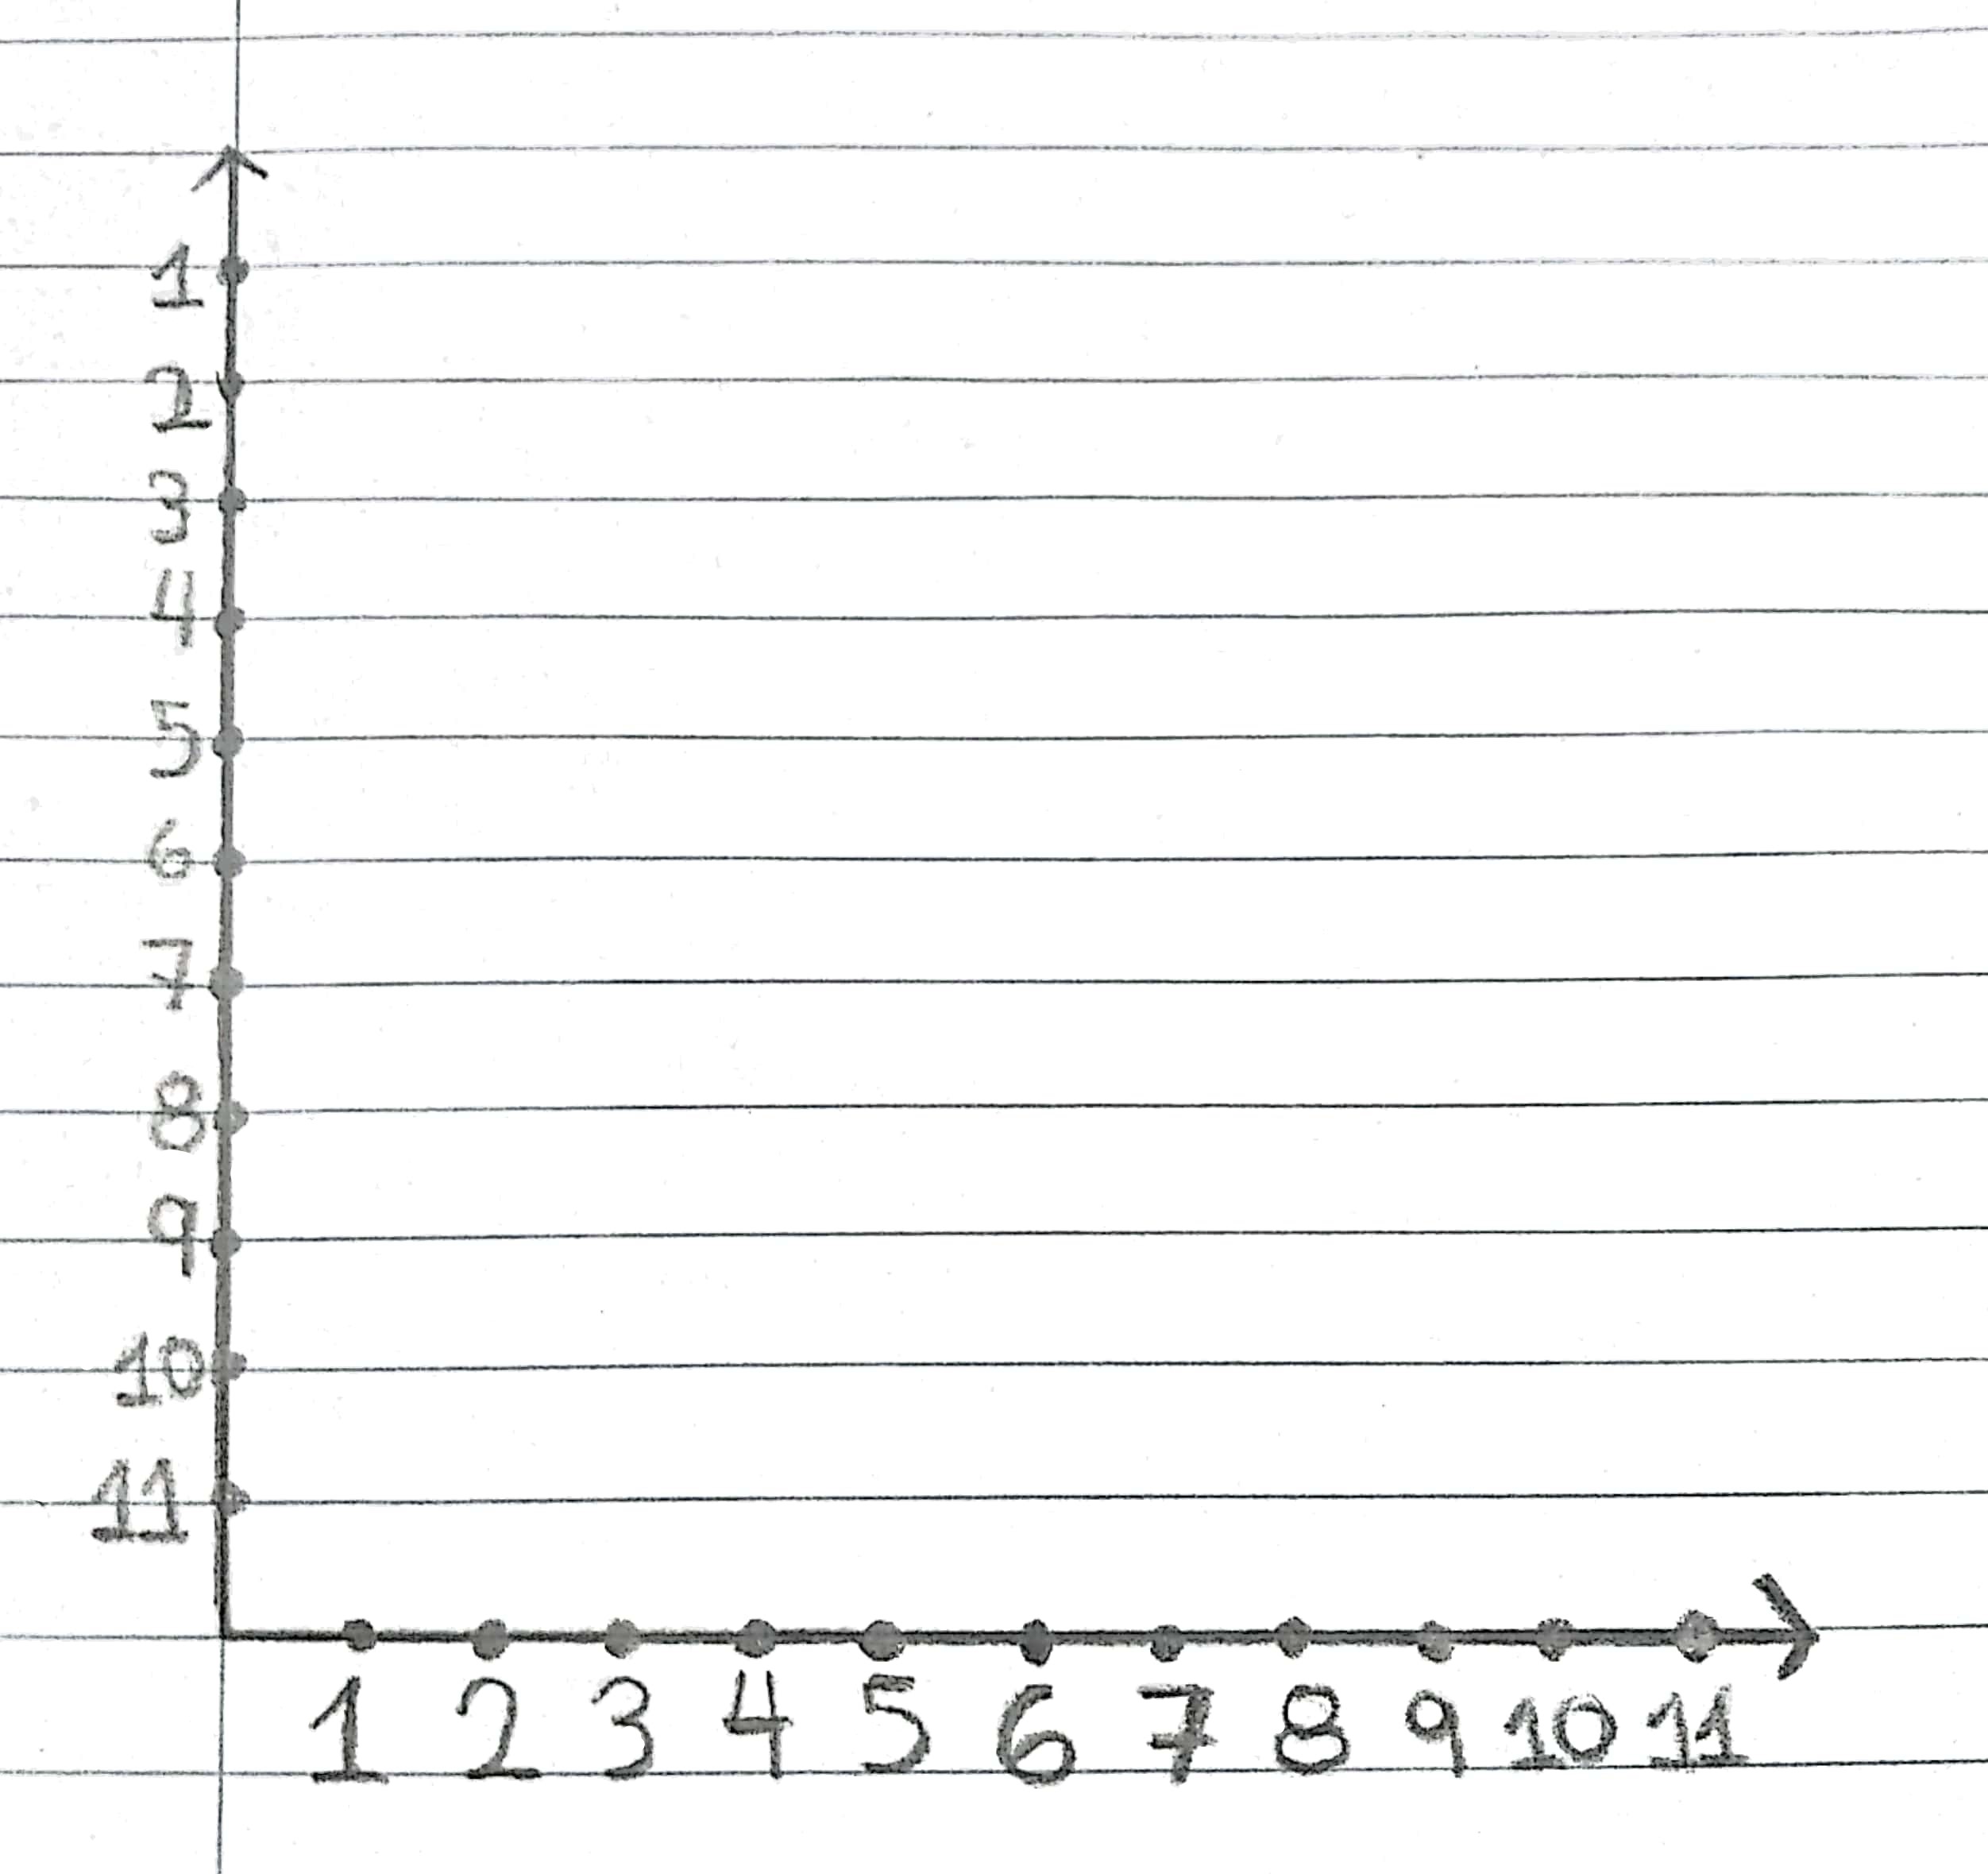 1
2
3
4
5
6
7
8
9
10
11
1 2 3 4 5 6 7 8 9 10 11